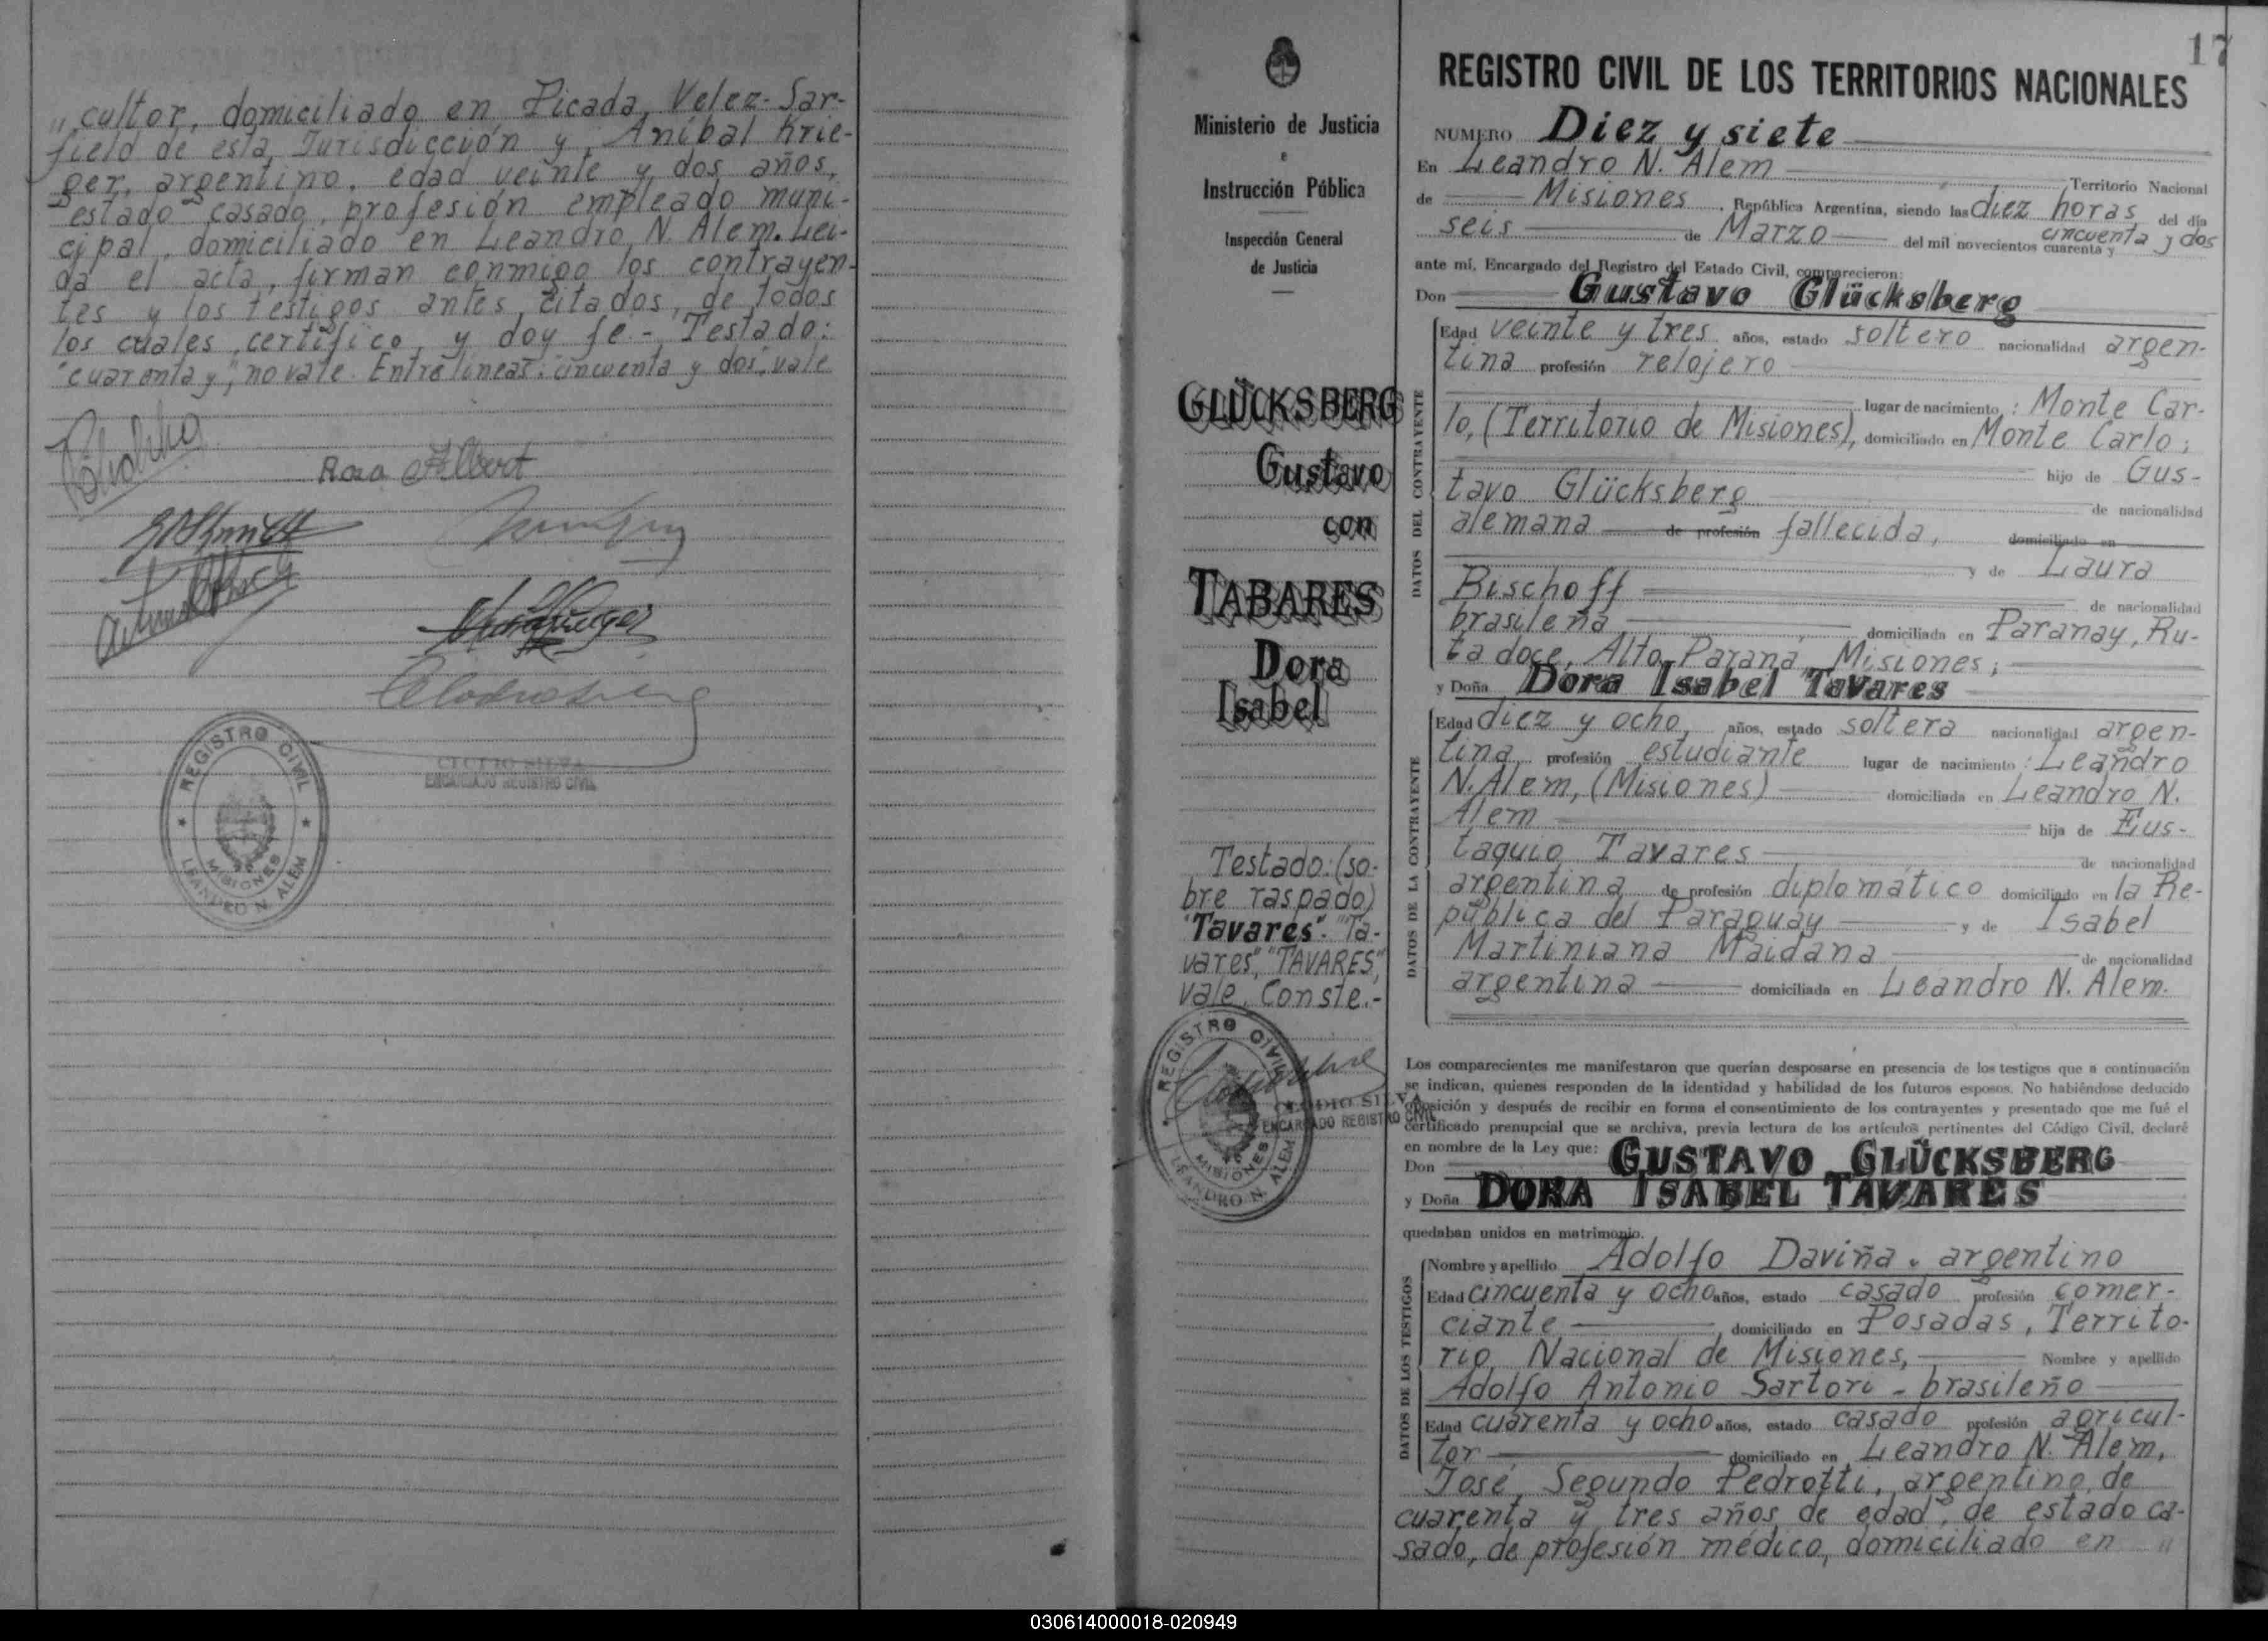 " cultor, domiciliado en Picada Velez-Sar-
field de esta Jurisdicción y Aníbal Krie-
ger, argentino, edad veinte y dos años,
estado casado, profesión empleado muni-
cipal, domiciliado en Leandro N. Alem. Leí-
da el acta, firman conmigo los contrayen-
tes y los testigos antes citados, de todos
los cuales certifico y doy fe.- Testado:
"cuarenta y", no vale. Entrelíneas: cincuenta y dos, vale
Rosa Albert
REGISTRO CIVIL
MISIONES
LEANDRO N. ALEM
CLODIO SILVA
ENCARGADO REGISTRO CIVIL
Ministerio de Justicia
e
Instrucción Pública
Inspección General
de Justicia
GLÜCKSBERG
Gustavo
con
TABARES
Dora
Isabel
Testado: (so-
bre raspado)
"Tavares". "Ta-
vares", "TAVARES",
vale. Conste.-
REGISTRO CIVIL
MISIONES
LEANDRO N. ALEM
CLODIO SILVA
ENCARGADO REGISTRO CIVIL
17
REGISTRO CIVIL DE LOS TERRITORIOS NACIONALES
NUMERO Diez y siete
En Leandro N. Alem Territorio Nacional
de Misiones, República Argentina, siendo las diez horas del día
seis de Marzo del mil novecientos cuarenta y cincuenta y dos
ante mí, Encargado del Registro del Estado Civil, comparecieron:
Don Gustavo Glücksberg
DATOS DEL CONTRAYENTE
Edad veinte y tres años, estado soltero nacionalidad argen-
tina profesión relojero
lugar de nacimiento: Monte Car-
lo, (Territorio de Misiones), domiciliado en Monte Carlo;
hijo de Gus-
tavo Glücksberg de nacionalidad
alemana de profesión fallecida, domiciliado en
y de Laura
Bischoff de nacionalidad
brasileña domiciliada en Paranay, Ru-
ta doce, Alto Paraná, Misiones;
y Doña Dora Isabel Tavares
DATOS DE LA CONTRAYENTE
Edad diez y ocho años, estado soltera nacionalidad argen-
tina profesión estudiante lugar de nacimiento: Leandro
N. Alem, (Misiones) domiciliada en Leandro N.
Alem hija de Eus-
taquio Tavares de nacionalidad
argentina de profesión diplomático domiciliado en la Re-
pública del Paraguay y de Isabel
Martiniana Maidana de nacionalidad
argentina domiciliada en Leandro N. Alem.
Los comparecientes me manifestaron que querían desposarse en presencia de los testigos que a continuación
se indican, quienes responden de la identidad y habilidad de los futuros esposos. No habiéndose deducido
oposición y después de recibir en forma el consentimiento de los contrayentes y presentado que me fué el
certificado prenupcial que se archiva, previa lectura de los artículos pertinentes del Código Civil, declaré
en nombre de la Ley que:
Don GUSTAVO GLÜCKSBERG
y Doña DORA ISABEL TAVARES
quedaban unidos en matrimonio.
DATOS DE LOS TESTIGOS
Nombre y apellido Adolfo Daviña. argentino
Edad cincuenta y ocho años, estado casado profesión comer-
ciante, domiciliado en Posadas, Territo-
rio Nacional de Misiones, Nombre y apellido
Adolfo Antonio Sartori - brasileño
Edad cuarenta y ocho años, estado casado profesión agricul-
tor domiciliado en Leandro N. Alem,
José Segundo Pedrotti, argentino, de
cuarenta y tres años de edad, de estado ca-
sado, de profesión médico, domiciliado en "
030614000018-020949